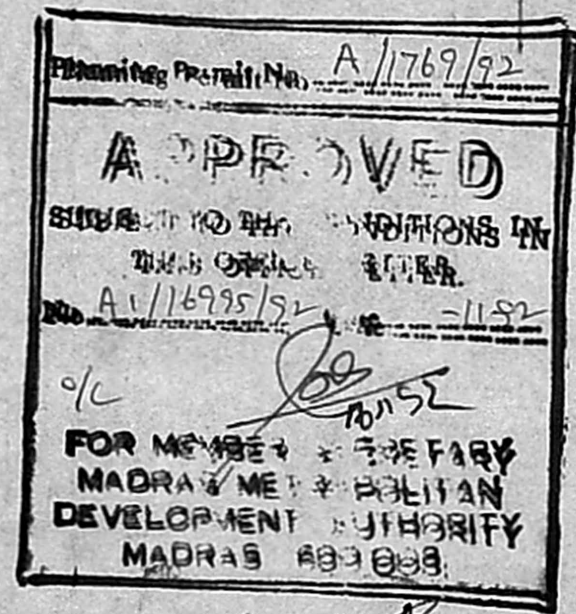 Planning Permit No. A/1769/92
APPROVED
SUBJECT TO THE CONDITIONS IN
THIS OFFICE LETTER.
No. A1/16995/92 -11-92
O/C
FOR MEMBER SECRETARY
MADRAS METROPOLITAN
DEVELOPMENT AUTHORITY
MADRAS 600 008.